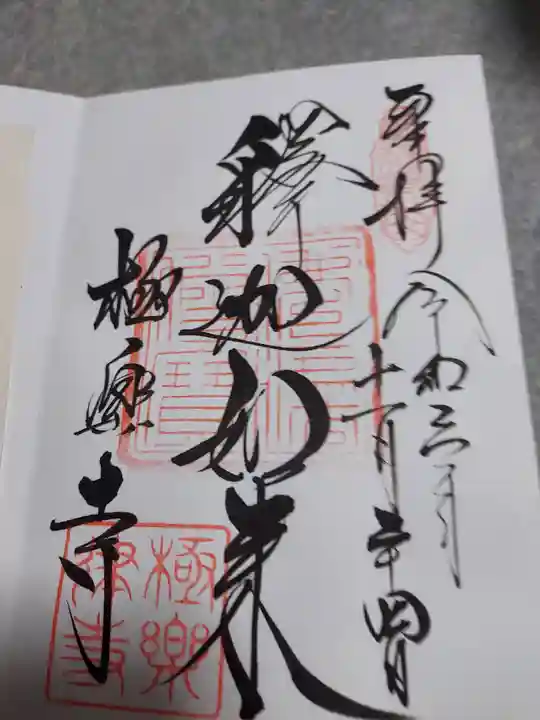 奉拝
令和三年
十一月二十四日
釋迦如来
極楽寺
極樂律寺